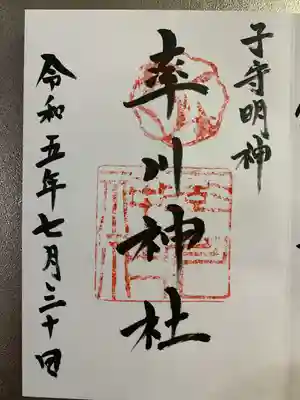 子守明神
率川神社
令和五年七月三十日